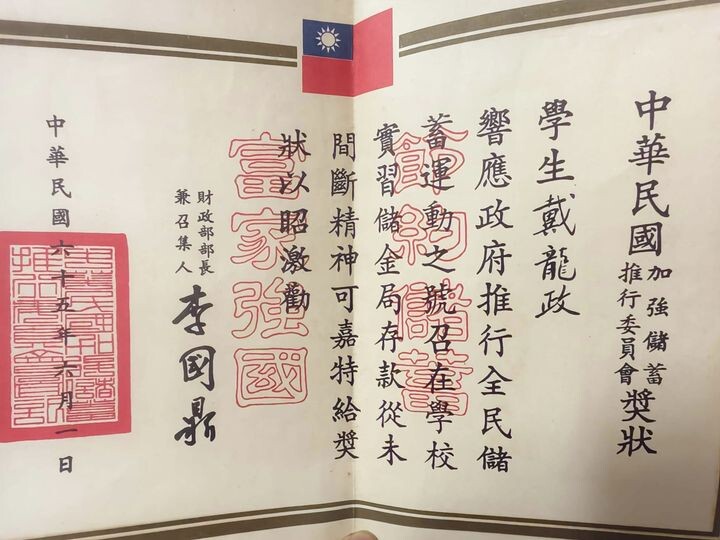 中華民國加強儲蓄推行委員會獎狀
學生戴龍政
響應政府推行全民儲
蓄運動之號召在學校
實習儲金局存款從未
間斷精神可嘉特給獎
狀以昭激勸
節約儲蓄
富家強國
財政部部長
兼召集人
李國鼎
中華民國六十五年六月一日